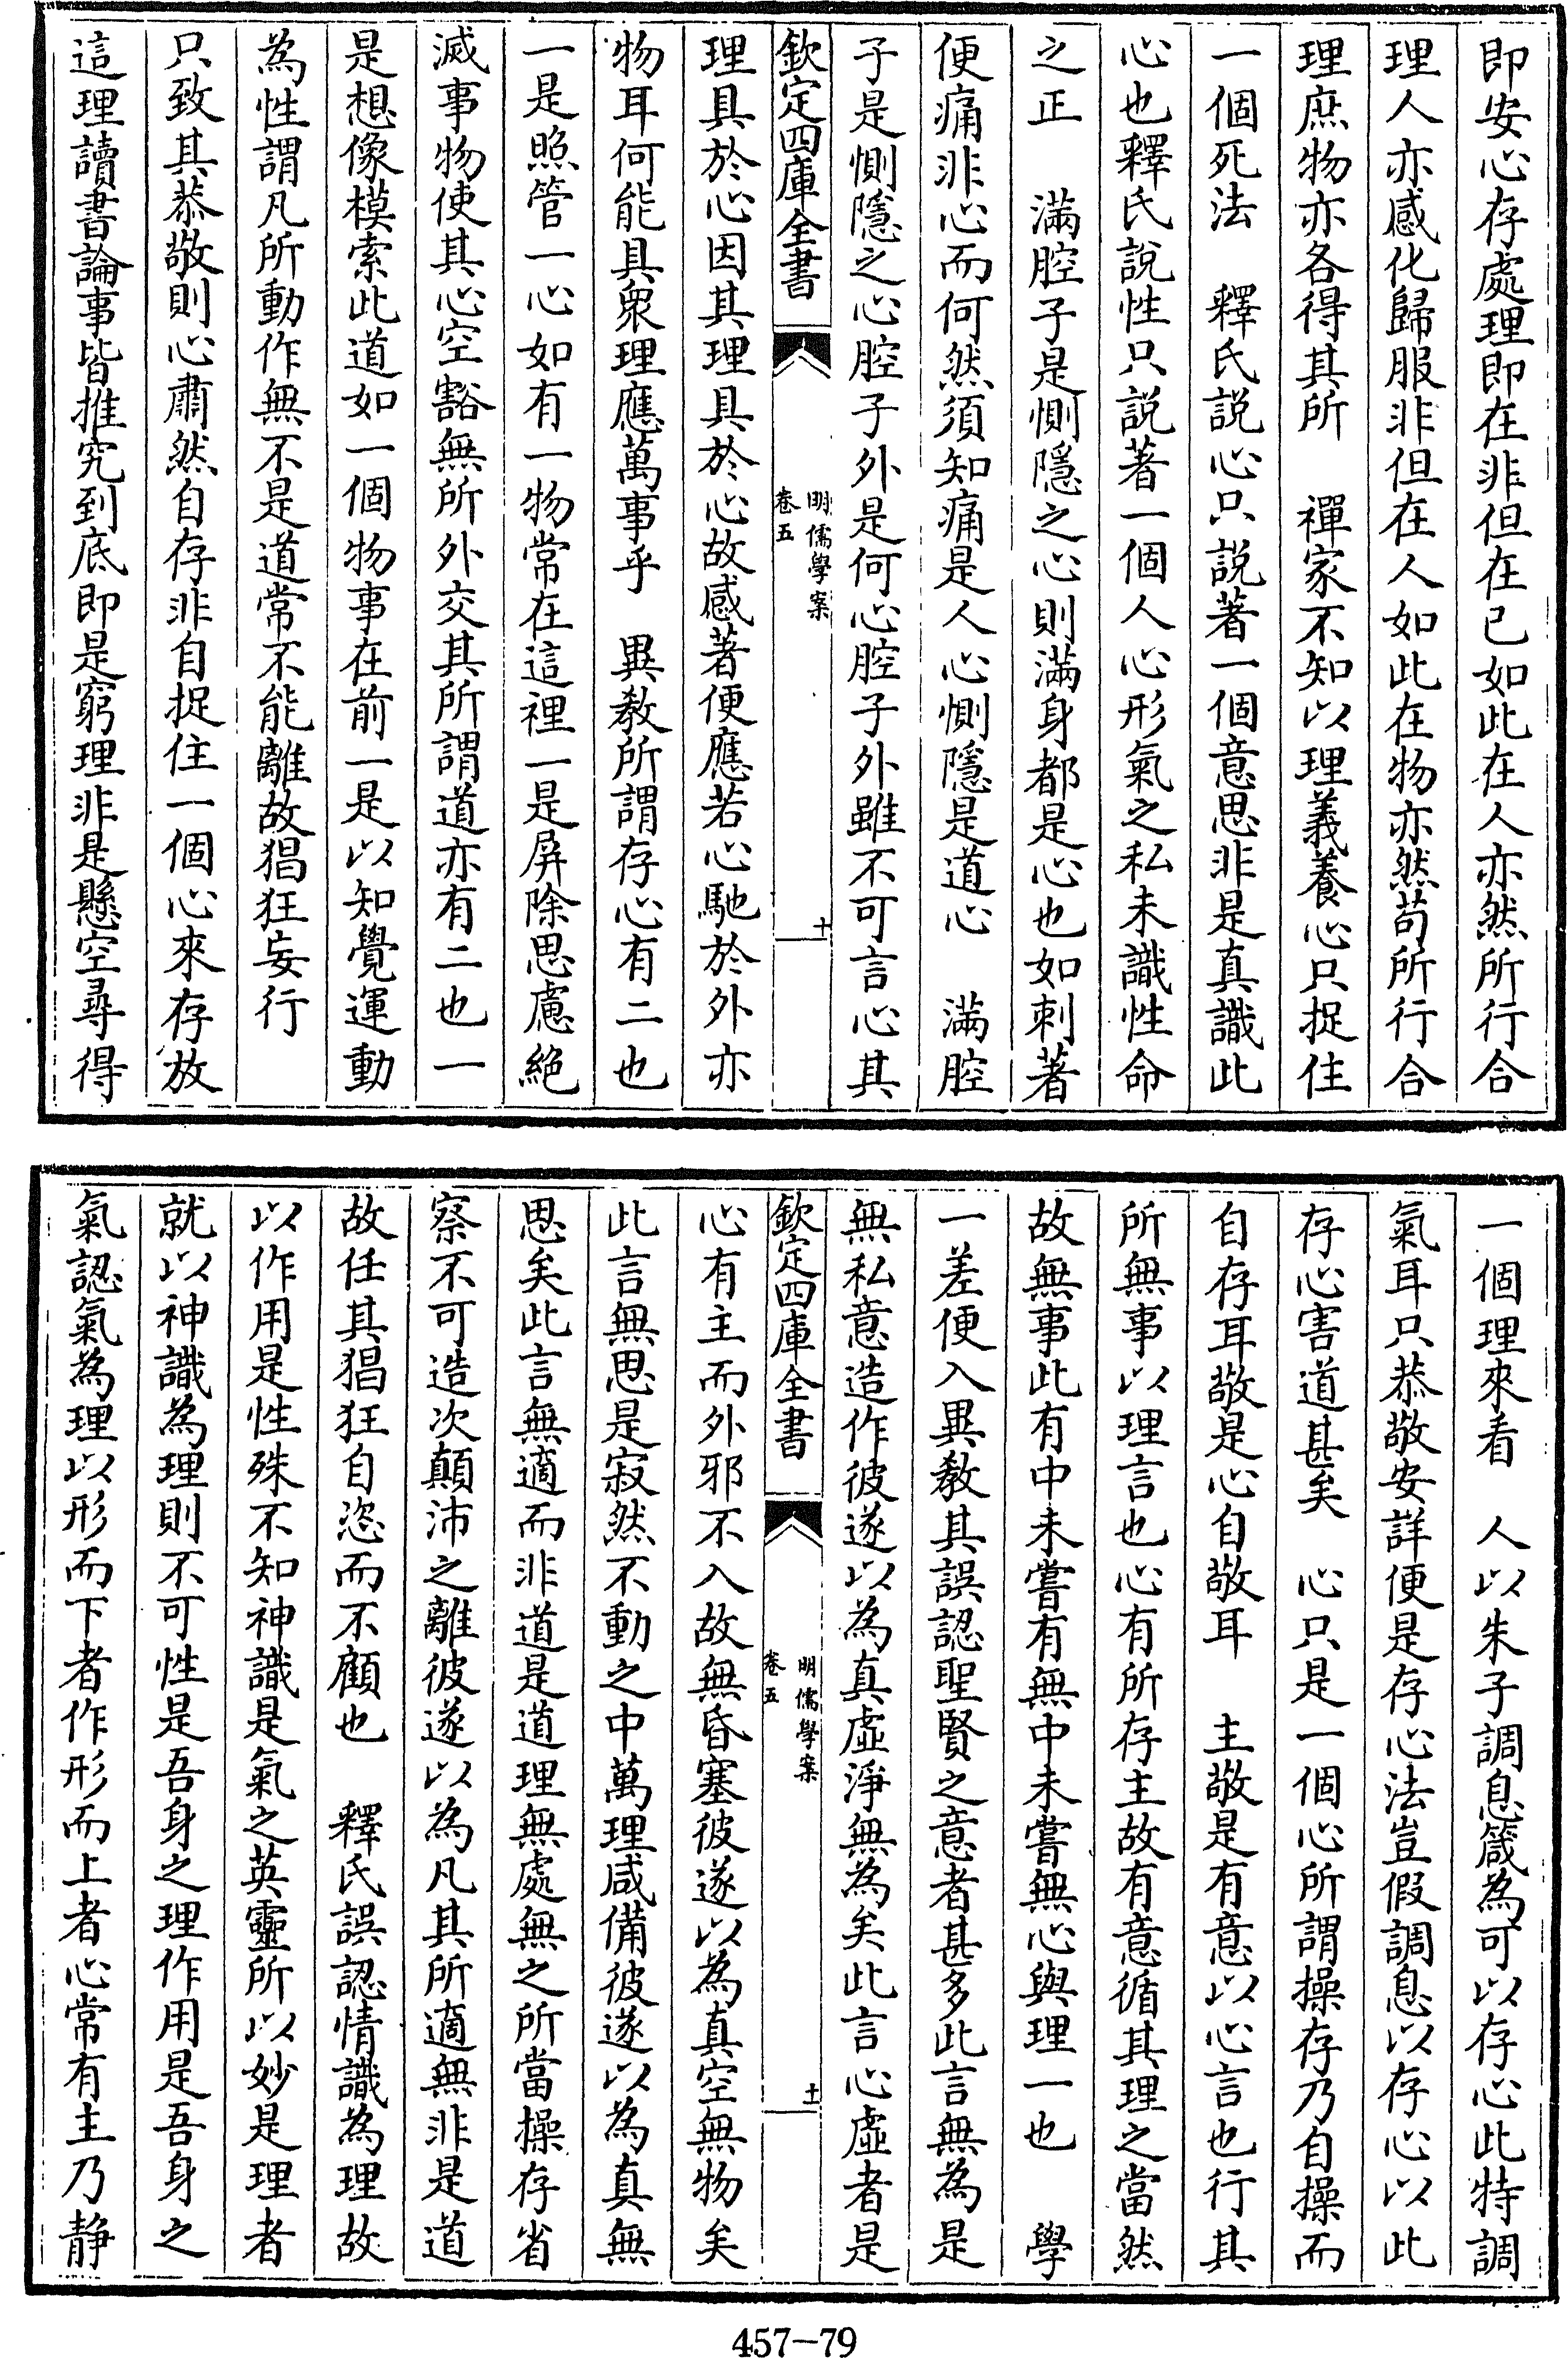 即安心存處理即在非但在己如此在人亦然所行合
理人亦感化歸服非但在人如此在物亦然苟所行合
理庶物亦各得其所　禪家不知以理義養心只捉住
一個死法　釋氏説心只説著一個意思非是真識此
心也釋氏說性只説著一個人心形氣之私未識性命
之正　滿腔子是惻隱之心則滿身都是心也如刺著
便痛非心而何然須知痛是人心惻隱是道心　滿腔
子是惻隱之心腔子外是何心腔子外雖不可言心其
欽定四庫全書
明儒學案
卷五
十
理具於心因其理具於心故感著便應若心馳於外亦
物耳何能具衆理應萬事乎　異教所謂存心有二也
一是照管一心如有一物常在這裡一是屏除思慮絕
滅事物使其心空豁無所外交其所謂道亦有二也一
是想像模索此道如一個物事在前一是以知覺運動
為性謂凡所動作無不是道常不能離故猖狂妄行
只致其恭敬則心肅然自存非自捉住一個心來存放
這理讀書論事皆推究到底即是窮理非是懸空尋得
一個理來看　人以朱子調息箴為可以存心此特調
氣耳只恭敬安詳便是存心法豈假調息以存心以此
存心害道甚矣　心只是一個心所謂操存乃自操而
自存耳敬是心自敬耳　主敬是有意以心言也行其
所無事以理言也心有所存主故有意循其理之當然
故無事此有中未嘗有無中未嘗無心與理一也　學
一差便入異教其誤認聖賢之意者甚多此言無為是
無私意造作彼遂以為真虛淨無為矣此言心虛者是
欽定四庫全書
明儒學案
卷五
十一
心有主而外邪不入故無昏塞彼遂以為真空無物矣
此言無思是寂然不動之中萬理咸備彼遂以為真無
思矣此言無適而非道是道理無處無之所當操存省
察不可造次顛沛之離彼遂以為凡其所適無非是道
故任其猖狂自恣而不顧也　釋氏誤認情識為理故
以作用是性殊不知神識是氣之英靈所以妙是理者
就以神識為理則不可性是吾身之理作用是吾身之
氣認氣為理以形而下者作形而上者心常有主乃静
457—79